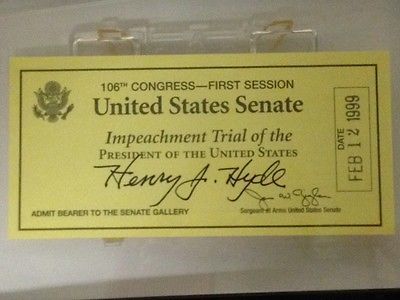 106TH CONGRESS—FIRST SESSION
United States Senate
Impeachment Trial of the
PRESIDENT OF THE UNITED STATES
Henry J. Hyde
ADMIT BEARER TO THE SENATE GALLERY
Sergeant at Arms United States Senate
DATE
FEB 12 1999